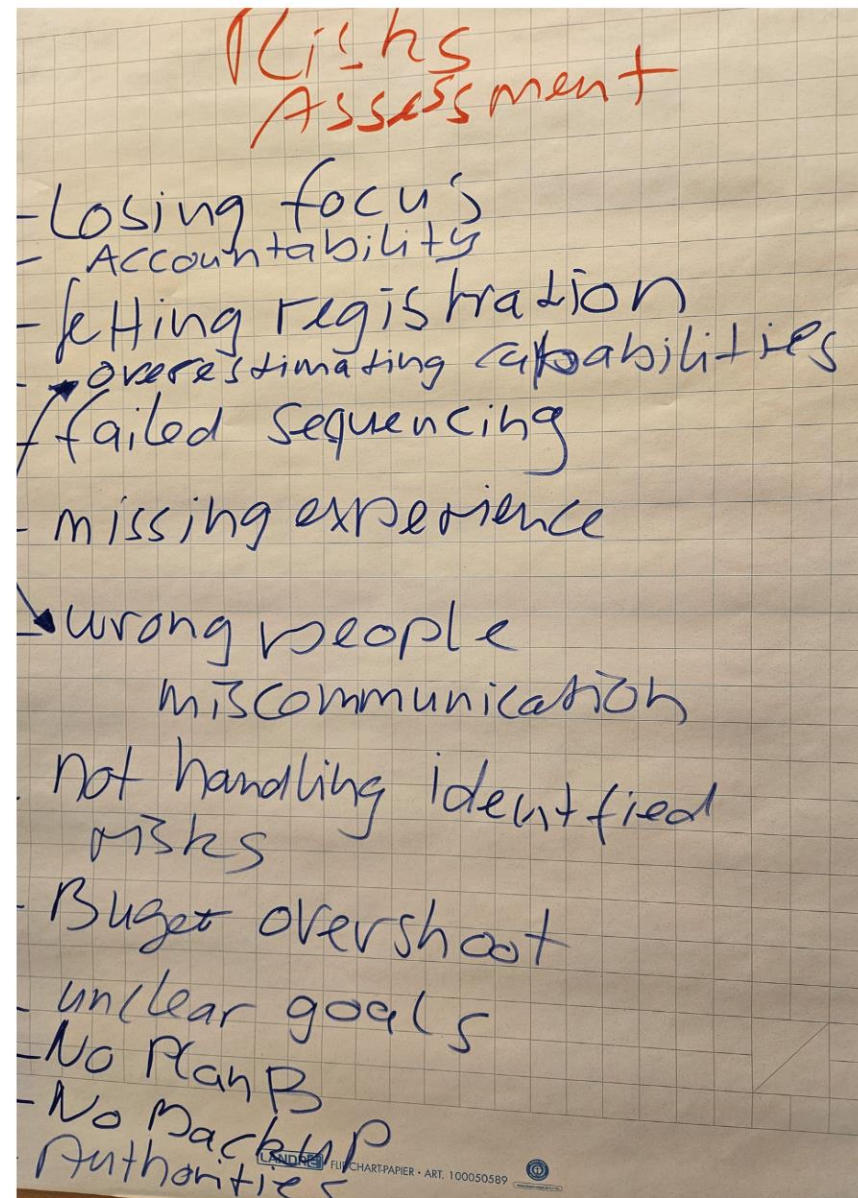 Risks
Assessment
- Losing focus
- Accountability
- getting registration
- overestimating capabilities
- failed sequencing
- missing experience
- wrong people
miscommunication
- not handling identfied
risks
- Buget overshoot
- unclear goals
- No Plan B
- No Backup
- Authorities
LANDRÉ FLIPCHART-PAPIER • ART. 100050589